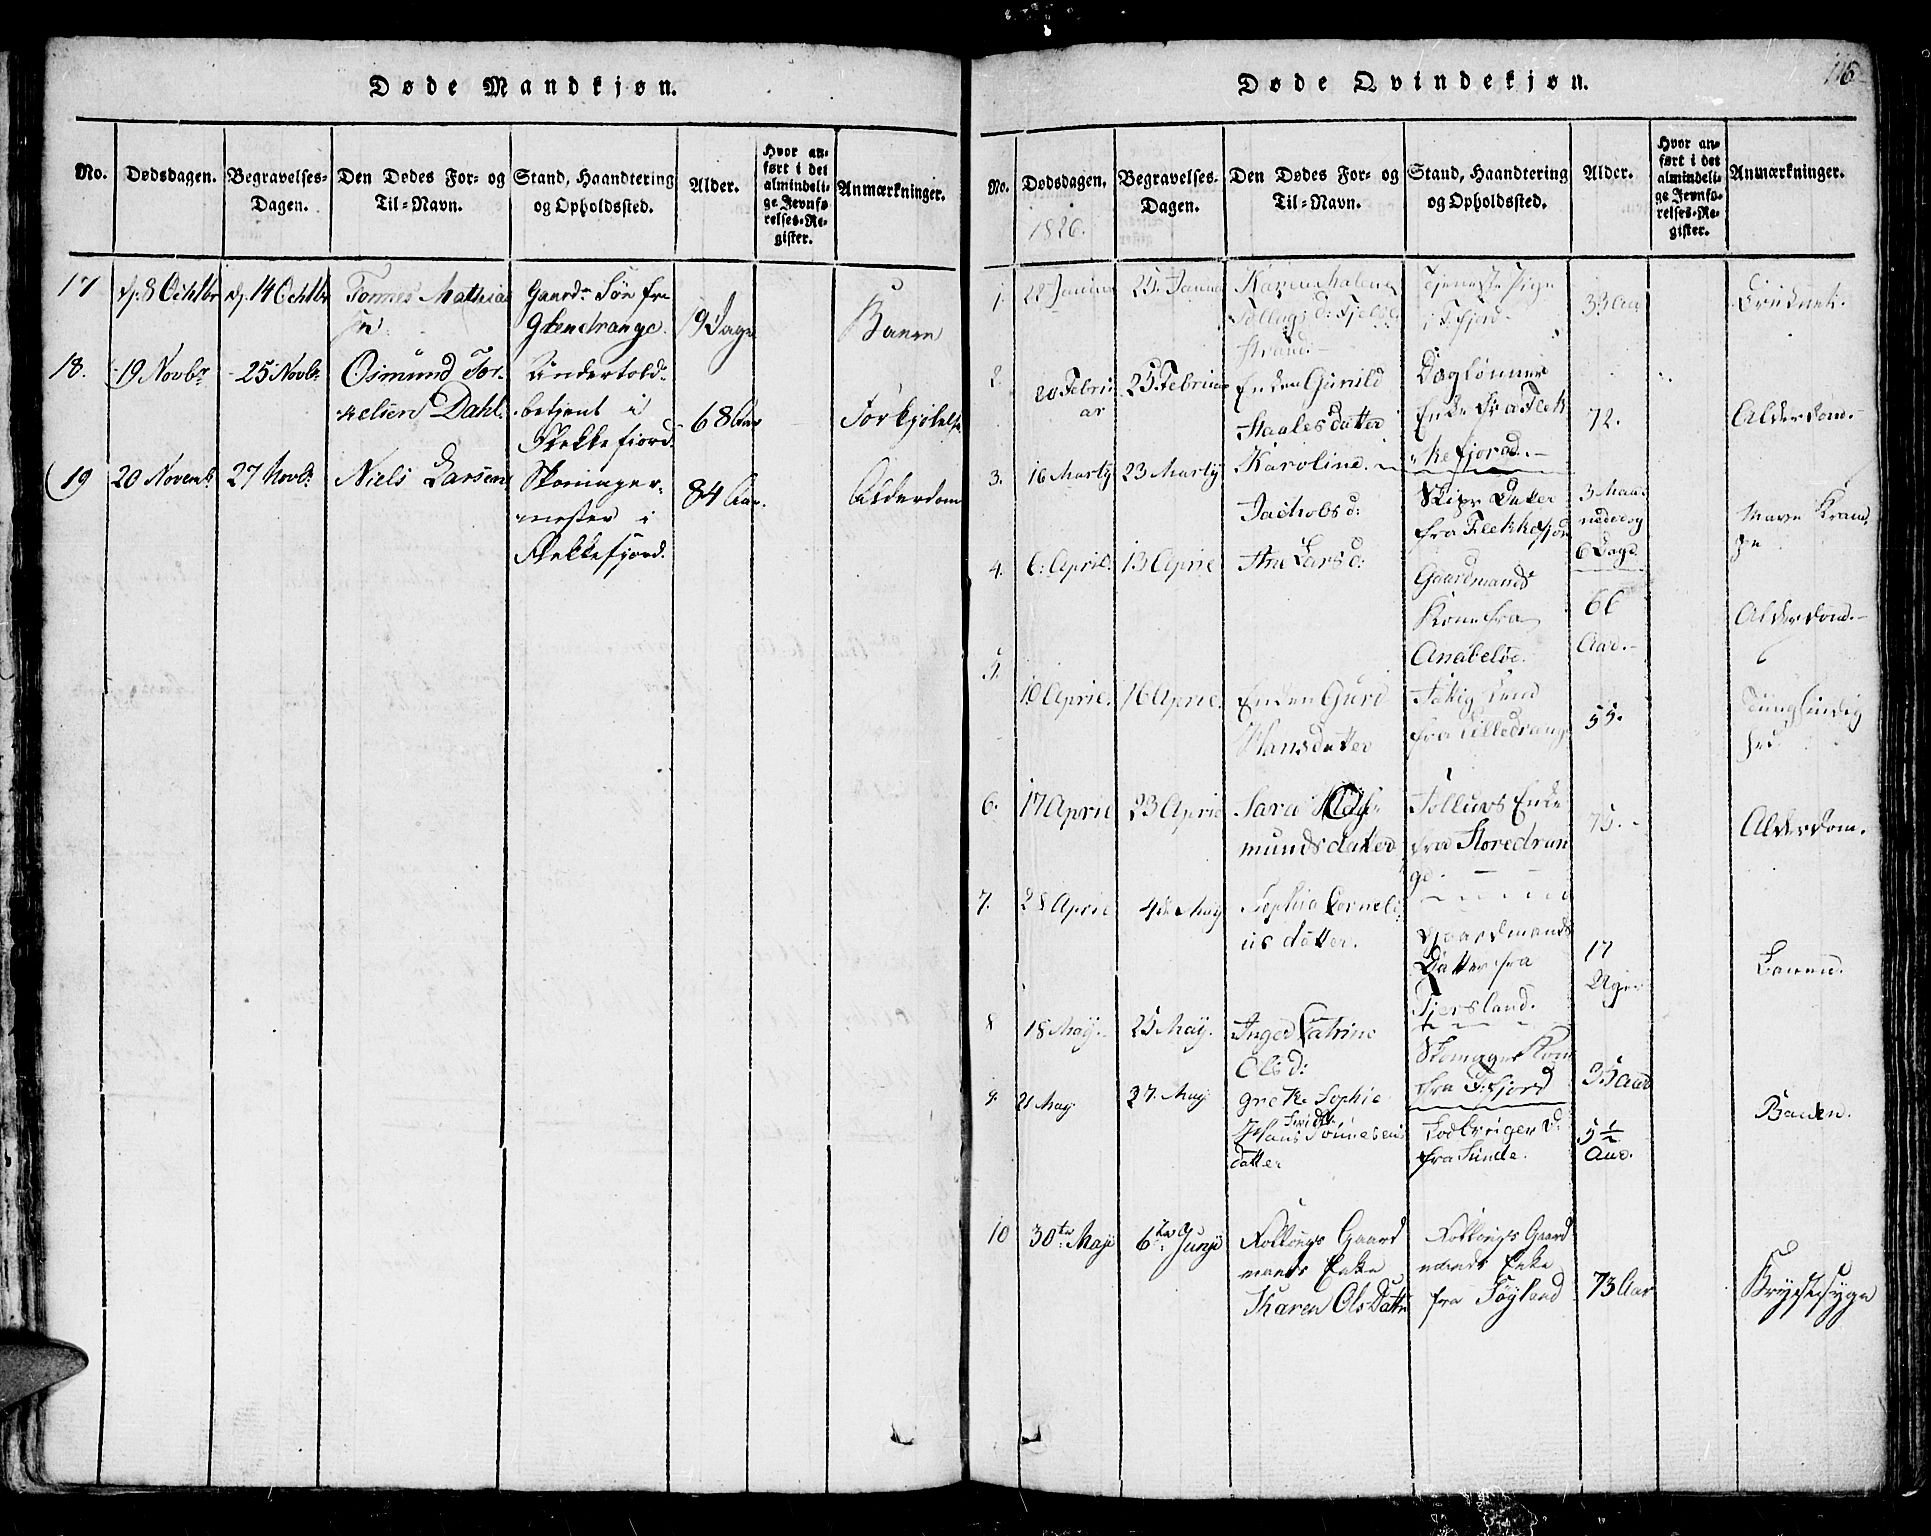 Døde Mandkjøn.
No.
Dødsdagen.
Begravelses-
Dagen.
Den Dødes For- og
Til-Navn.
Stand, Haandtering
og Opholdssted.
Alder.
Hvor an-
ført i det
almindeli-
ge Jevnfø-
relses-Re-
gister.
Anmærkninger.
17
8 Octbr
14 Octbr
Tønnes Mathias
Søn fra
9 Dage
18.
19 Novbr
25 Novbr
Osmund Tor-
kelsen Dahl.
Undertold-
betjent i
Flekkefiord
68 Aar
Forkjølelse
19
20 Novemb
27 Novbr
Niels Larsen
mester i
Flekkefjord.
84 Aar.
Alderdom
Døde Qvindekjøn.
116
No.
Dødsdagen.
1826.
Begravelses-
Dagen.
Den Dødes For- og
Til-Navn.
Stand, Haandtering
og Opholdssted.
Alder.
Hvor an-
ført i det
almindeli-
ge Jevnfø-
relses-Re-
gister.
Anmærkninger.
1.
Karen Malena
Strand
Tjeneste Pige
i F:fjord
33 Aar
2.
20 Febru
ar
25 Februar
Enken Gunild
Staalesdatter
Daglønner
Enke fra Flek
kefjord.
72.
Alderdom.
3.
16 Marty
23 Marty
Karoline
Jachobsd:
Skipr Datter
fra Flekkefjord
3 Maa
neder og
6 Dage
4.
6: April.
13 April
Ane Larsd:
Gaardmands
Kone fra
Anabeløe.
66
Aar.
Alderdom.
5.
10 April.
16 April.
Enken Gurid
Hansdatter
Fattig Lem
fra Lilledrange
55.
Tungsindig
hed.
6.
17 April
23 April
Sara
mundsdatter
Enke
fra Storedran
ge.
75.
Alderdom.
7.
28 April
4de May
Sophia Corneli
us datter.
Gaardmands
Datter fra
Fjersland.
17
Uger
8
18 May.
25 May.
Inger Catrine
Olsd:
Skomager Kone
fra F:fjord
9.
21 May
27. May
Grete Sophie
Hans Tønnesens
datter
fra Sunde.
5 1/2
Aar.
10
30te Maji
6te Junji
Gaard
mands Enke
Karen Ols Datter
Gaard
mands Enke
fra Føyland
73 Aar
Brystsyge